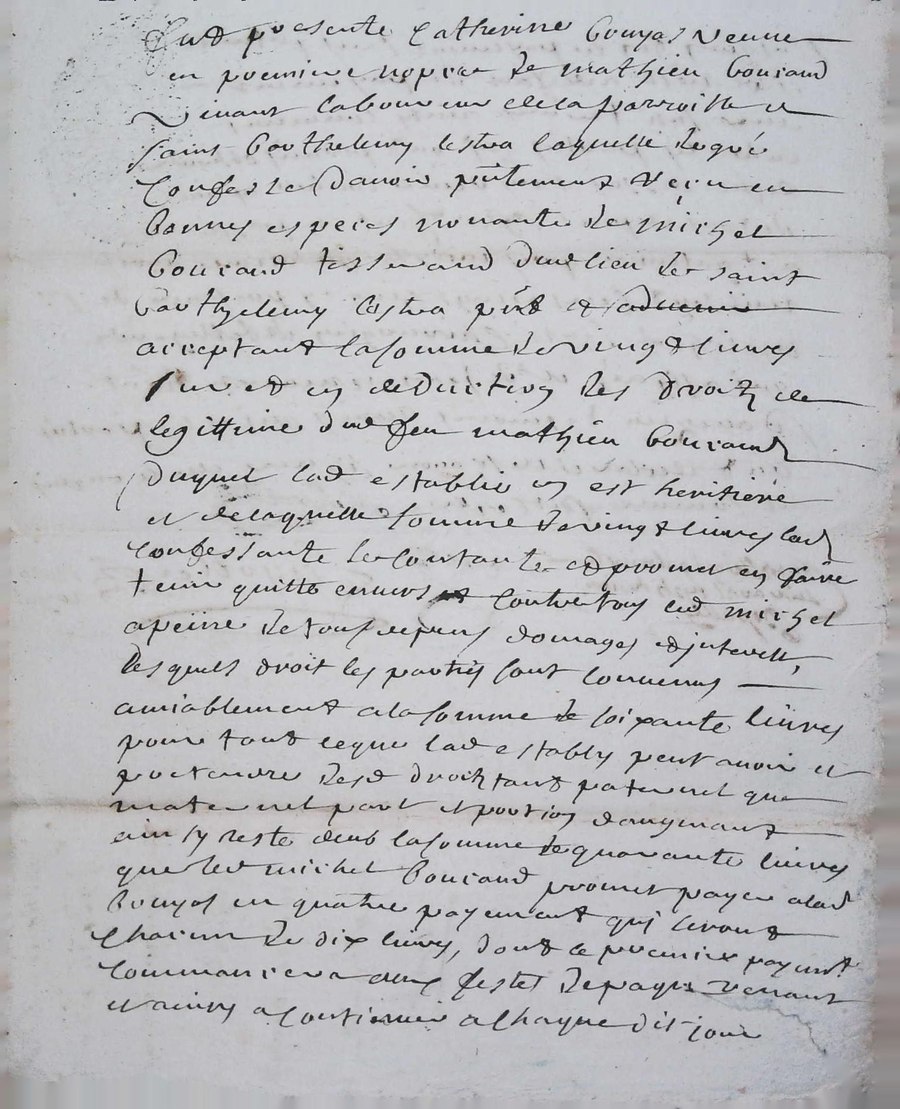 fut presente Catherine bouyos veuve
en premiere nopces de mathieu bourand
vivant laboureur de la parroisse de
saint barthelemy lestra laquelle de gré
confesse d'avoir pntement reçu en
bonnes especes nonante de michel
bourand tisserand dud lieu de saint
barthelemy lestra pnt et
acceptant la somme de vingt livres
sur et en deduction des droitz de
legittime dud feu mathieu bourand
duquel lad establie en est heritiere
et de laquelle somme de vingt livres lad
confessante se contante et promet en faire
tenir quitte envers et contre tous led michel
a peine de tous depens domages et interetz,
lesquels droit les parties sont convenus
amiablement a la somme de soixante livres
pour tout ce que lad establis peut avoir et
pretendre desd droitz tant paternel que
maternel part et portion d'augmant
ainsy reste deub la somme de quarante livres
que led michel bourand promet payer a lad
bouyos en quatre payement qui seront
chacun de dix livres, dont le premier payemt
commancera aux festes de pasques venant
et ainsy a continuer a chaque dit jour